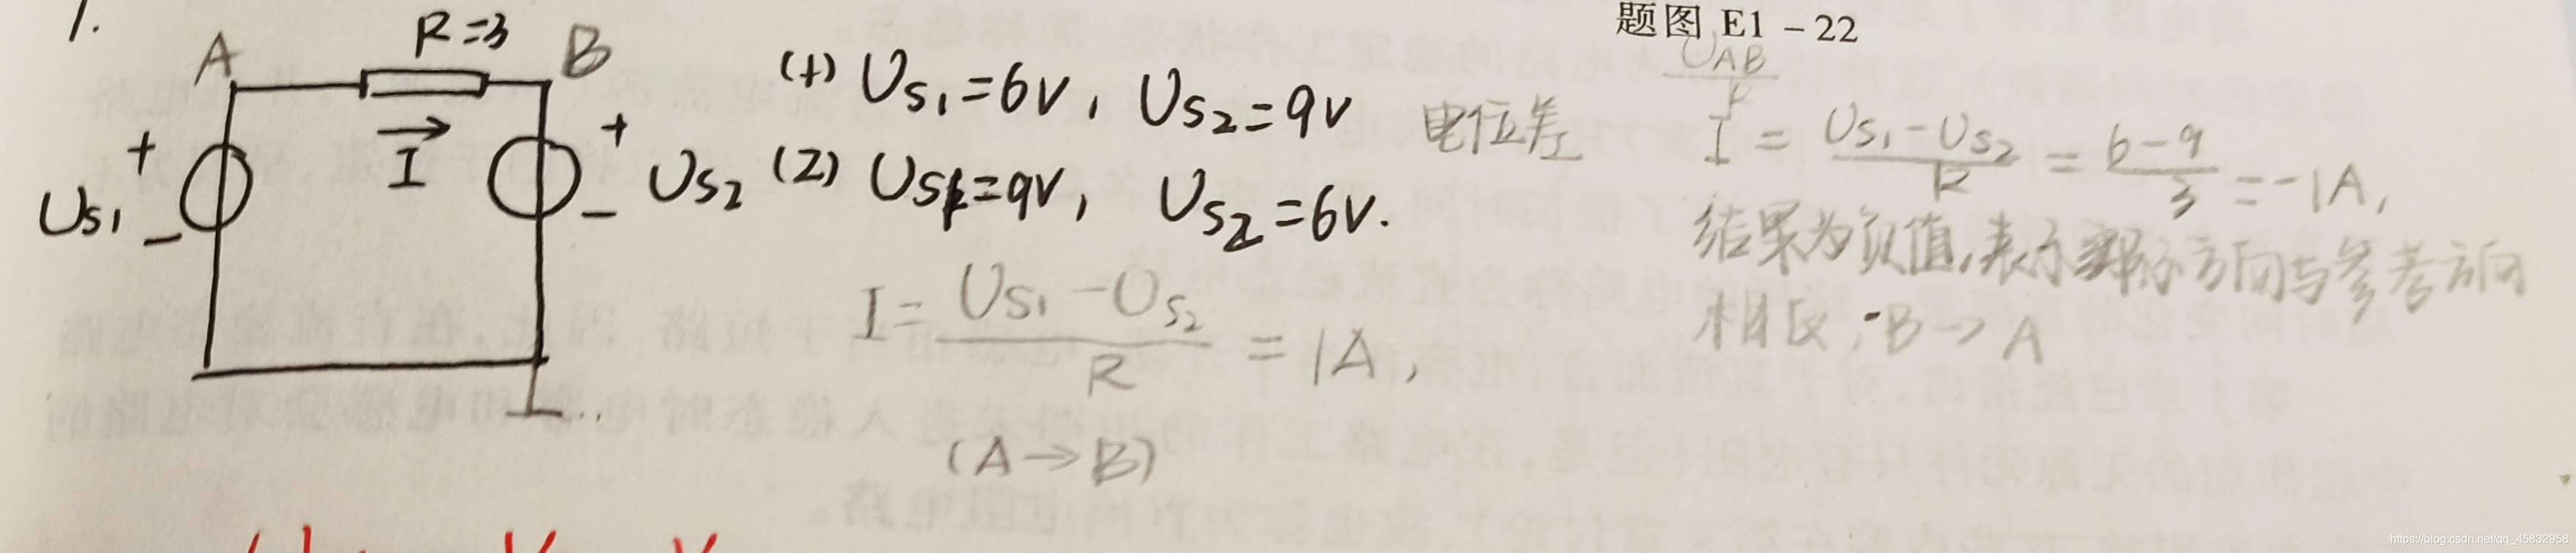 1.
题图 E1-22
A
R=3
B
+
I
+
Us1
-
-
Us2
(1) Us1=6V, Us2=9V
(2) Us1=9V, Us2=6V.
I=Us1-Us2/R=1A,
(A→B)
电位差
UAB/R
I=Us1-Us2/R=6-9/3=-1A,
结果为负值,表示实际方向与参考方向
相反,B→A
https://blog.csdn.net/qq_45832958